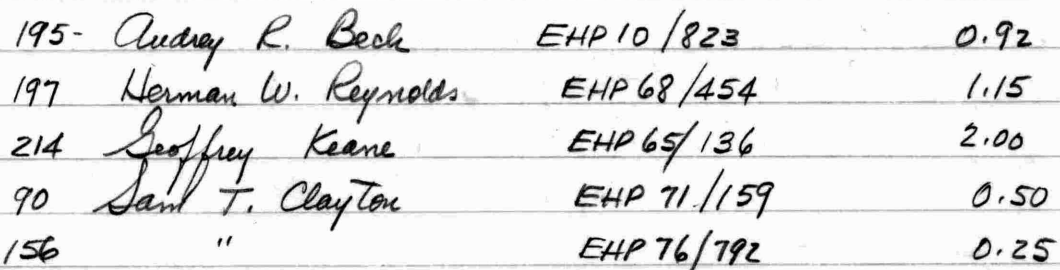 195- Audrey R. Beck EHP 10/823 0.92
197 Herman W. Reynolds EHP 68/454 1.15
214 Geoffrey Keane EHP 65/136 2.00
90 Sam T. Clayton EHP 71/159 0.50
156 " EHP 76/792 0.25